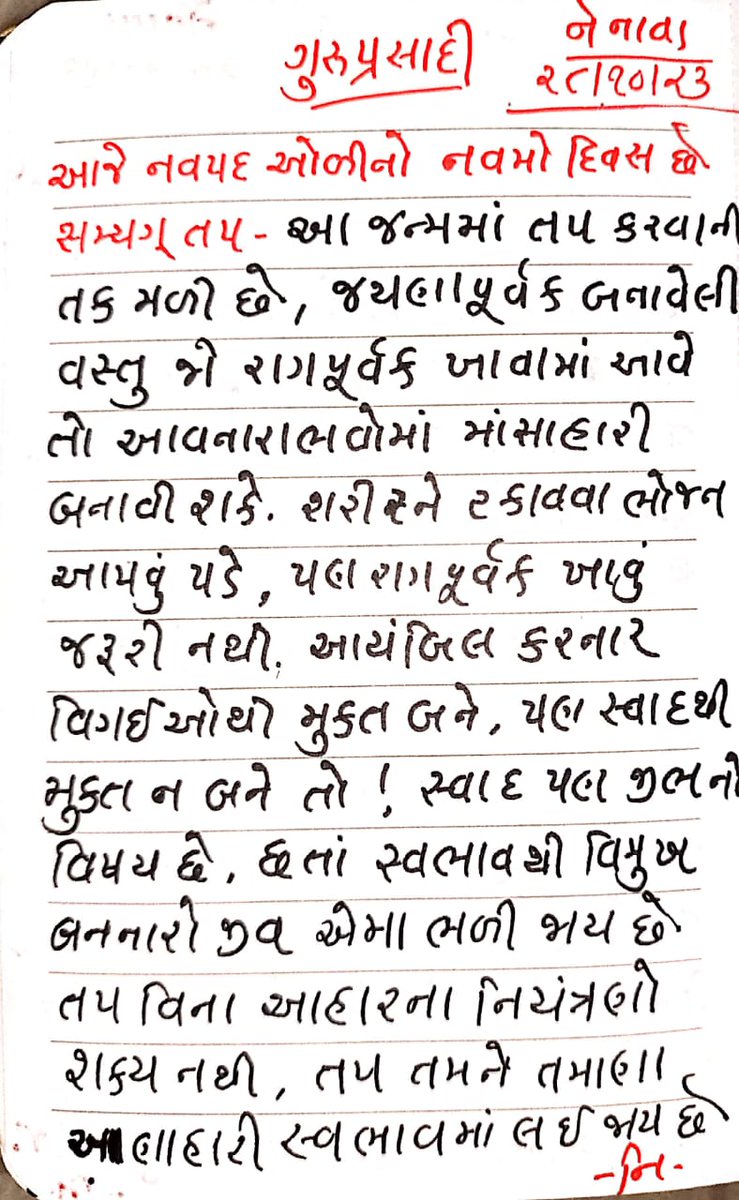 ગુરુપ્રસાદી
નેનાવા
૨૮/૧૦/૨૩
આજે નવપદ ઓળીનો નવમો દિવસ છે
સમ્યગ્ તપ - આ જન્મમાં તપ કરવાની
તક મળી છે, જયણાપૂર્વક બનાવેલી
વસ્તુ જો રાગપૂર્વક ખાવામાં આવે
તો આવનારાભવોમાં માંસાહારી
બનાવી શકે. શરીરને ટકાવવા ભોજન
આપવું પડે, પણ રાગપૂર્વક ખાવું
જરૂરી નથી. આયંબિલ કરનાર
વિગઈઓથી મુક્ત બને, પણ સ્વાદથી
મુક્ત ન બને તો ! સ્વાદ પણ જીભનો
વિષય છે, છતાં સ્વભાવથી વિમુખ
બનનારો જીવ એમા ભળી જાય છે
તપ વિના આહારના નિયંત્રણો
શક્ય નથી, તપ તમને તમાણા
અણાહારી સ્વભાવમાં લઈ જાય છે
-નિ-